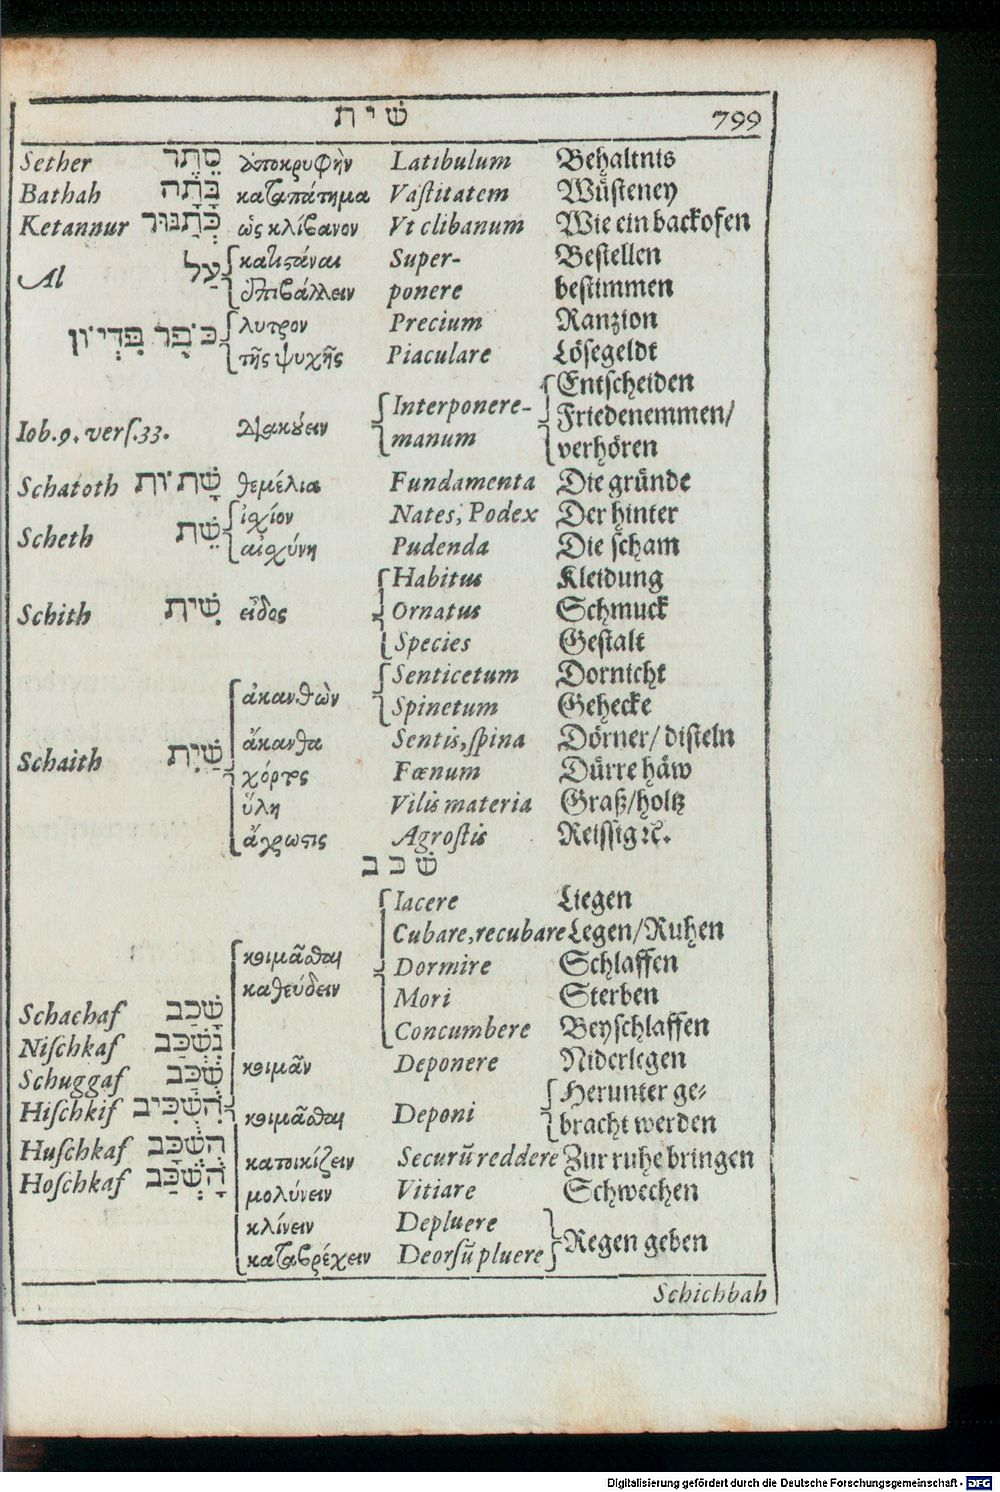 שׁ י ת 799
Sether סֵתֶר ἀποκρυφὴν Latibulum Behaltnis
Bathah בָּתָה καταπάτημα Vaſtitatem Wüſteney
Ketannur כְּתַנּוּר ὡς κλίβανον Vt clibanum Wie ein backofen
Al עַל καθιστάναι Super- Beſtellen
ἐπιβάλλειν ponere beſtimmen
כֹּפֶר פִּדְיוֹן λυτρον Precium Ranzion
τῆς ψυχῆς Piaculare Löſegeldt
Entſcheiden
Iob. 9. verſ. 33. διακούειν Interponere- Friedenemmen/
manum verhören
Schatoth שָׁתוֹת θεμέλια Fundamenta Die gründe
Scheth שֵׁת ἰσχίον Nates, Podex Der hinter
αἰσχύνη Pudenda Die ſcham
Habitus Kleidung
Schith שִׁית εἶδος Ornatus Schmuck
Species Geſtalt
ἀκανθῶν Senticetum Dornicht
Spinetum Gehecke
Schaith שַׁיִת ἄκανθα Sentis, ſpina Dörner/ diſteln
χόρτος Fœnum Dürre häw
ὕλη Vilis materia Graß/holtz
ἄγρωστις Agroſtis Reiſſig ꝛc.
שׁ כ ב
Iacere Liegen
Cubare, recubare Legen/Ruhen
κοιμᾶσθαι Dormire Schlaffen
καθεύδειν Mori Sterben
Schachaf שָׁכַב Concumbere Beyſchlaffen
Niſchkaf נִשְׁכַּב κοιμᾶν Deponere Niderlegen
Schuggaf שֻׁכַּב Herunter ge-
Hiſchkif הִשְׁכִּיב κοιμᾶσθαι Deponi bracht werden
Huſchkaf הֻשְׁכַּב κατοικίζειν Securũ reddere Zur ruhe bringen
Hoſchkaf הָשְׁכַּב μολύνειν Vitiare Schwechen
κλίνειν Depluere Regen geben
καταβρέχειν Deorſũ pluere
Schichbah
Digitalisierung gefördert durch die Deutsche Forschungsgemeinschaft - DFG